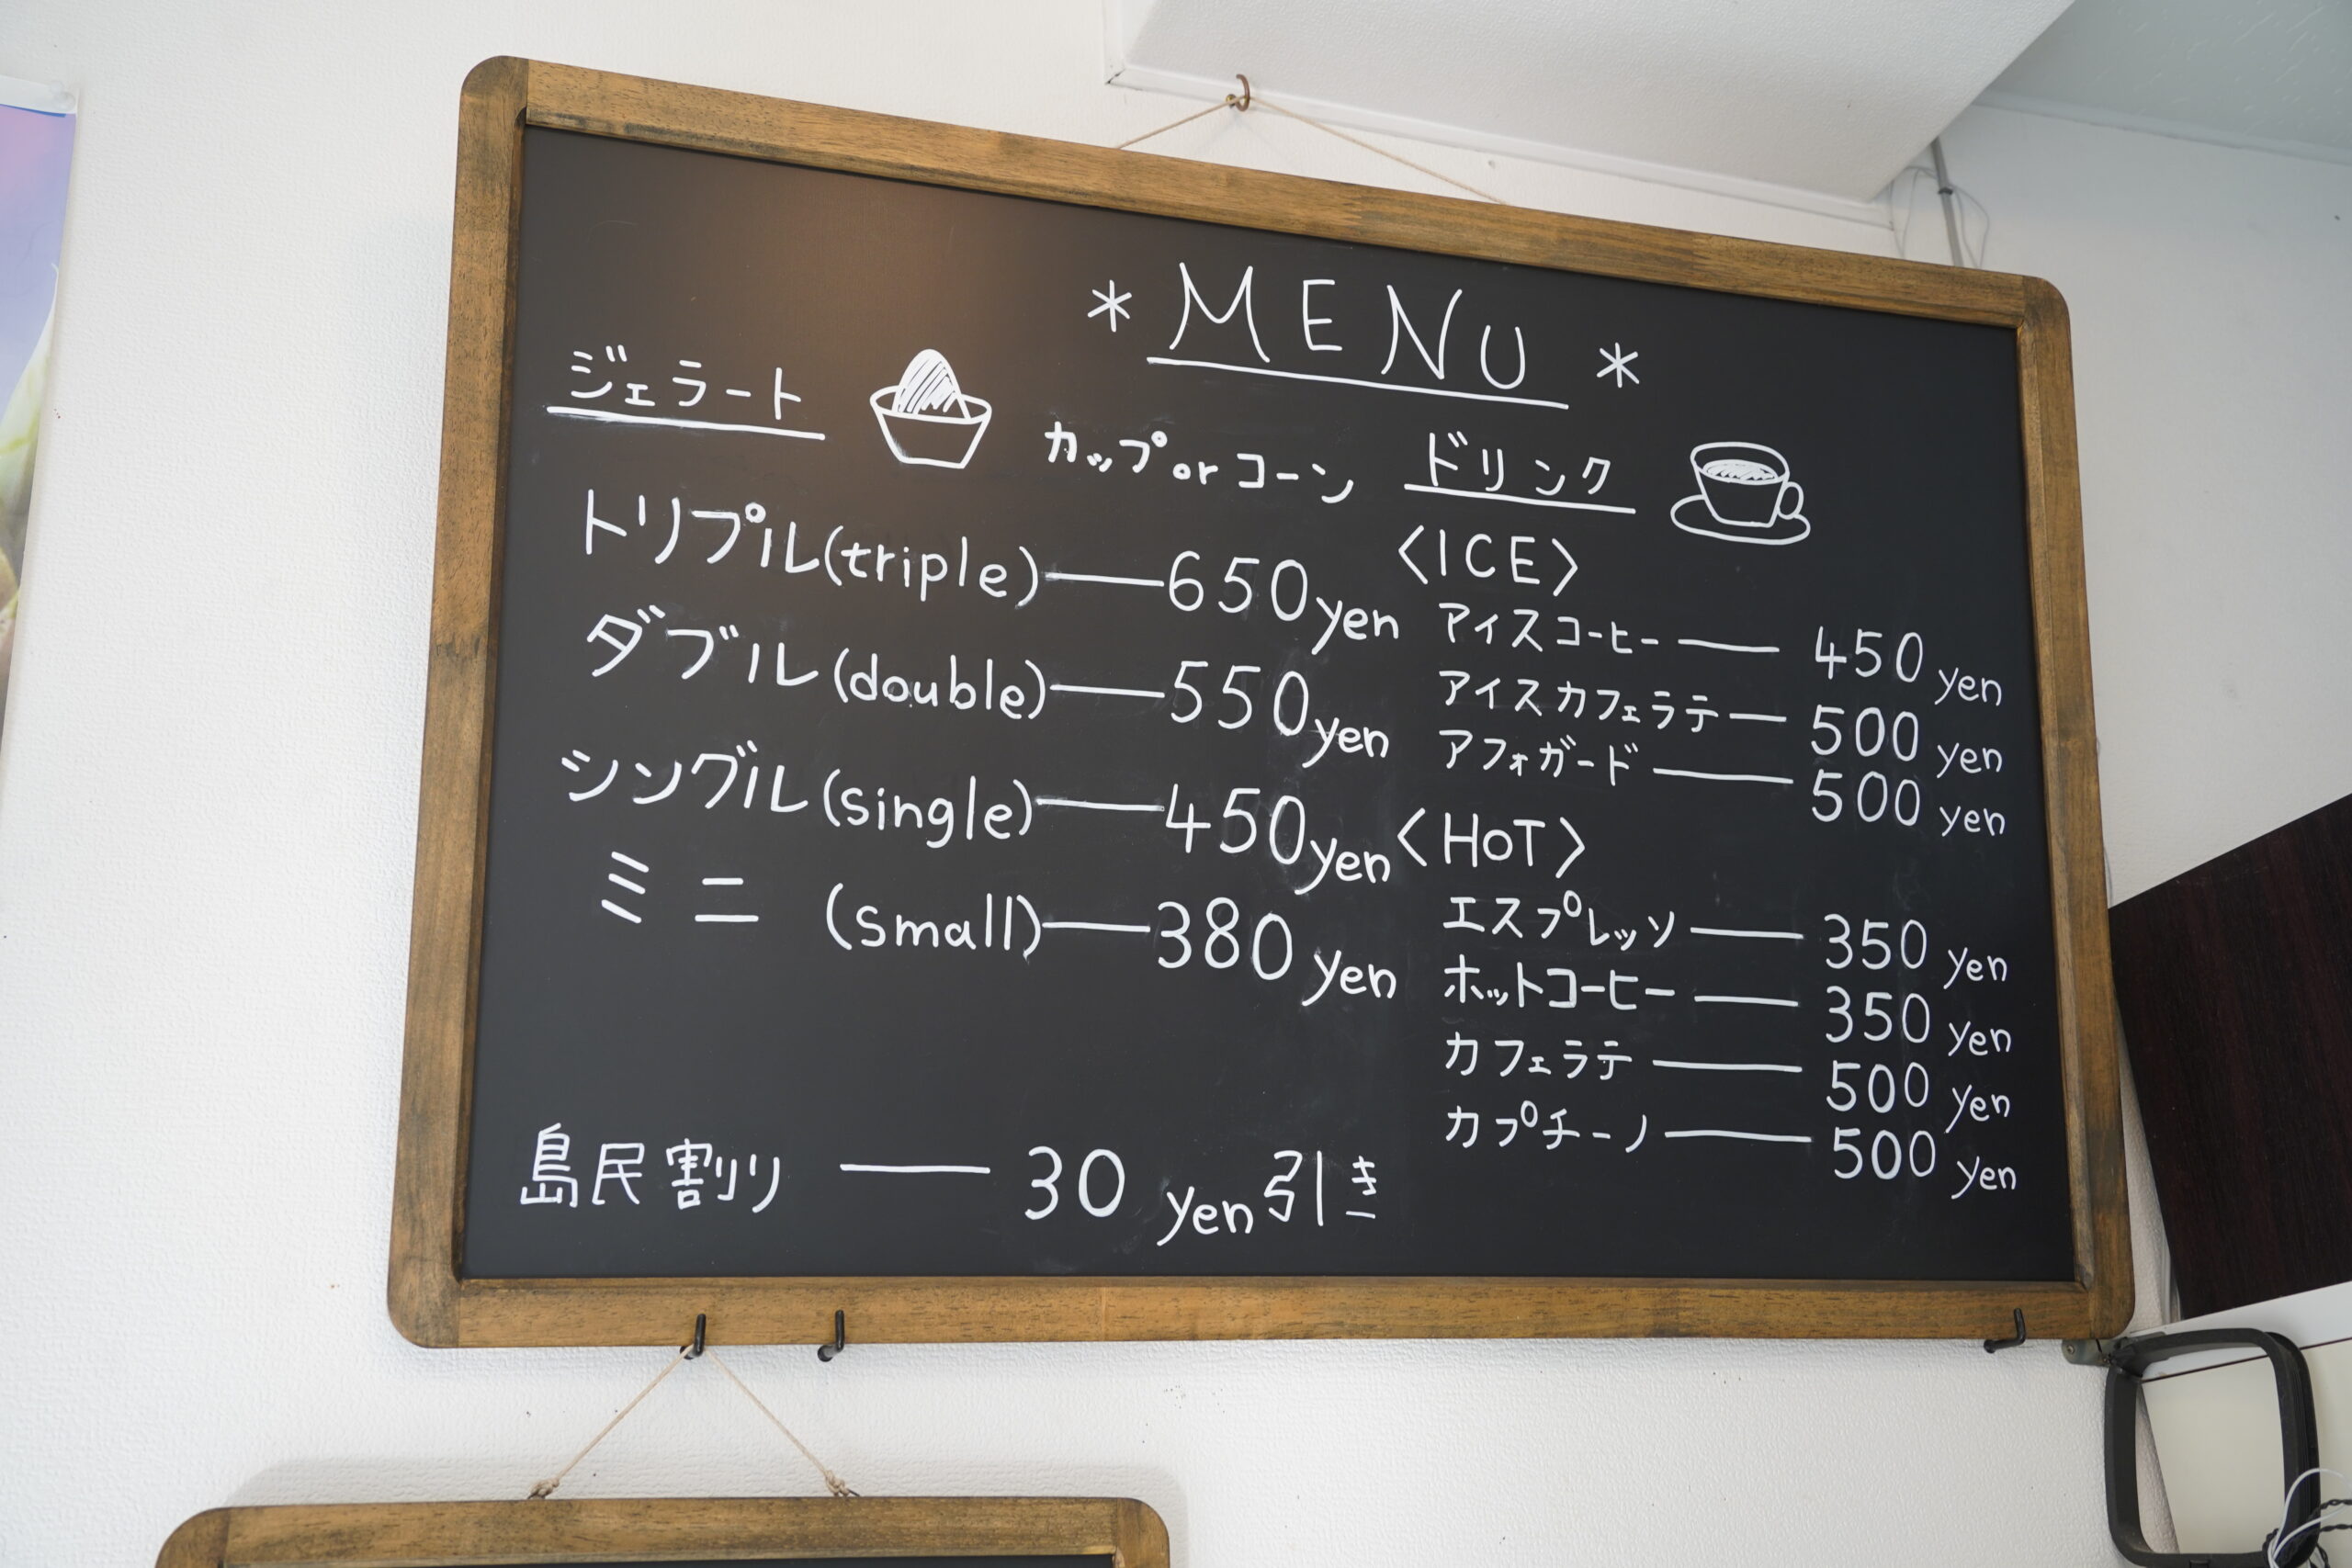 * MENU *
ジェラート
カップ or コーン
トリプル(triple)—650yen
ダブル(double)—550yen
シングル(single)—450yen
ミニ (small)—380yen
島民割り — 30 yen引き
ドリンク
〈ICE〉
アイスコーヒー — 450 yen
アイスカフェラテ — 500 yen
アフォガード — 500 yen
〈HOT〉
エスプレッソ — 350 yen
ホットコーヒー — 350 yen
カフェラテ — 500 yen
カプチーノ — 500 yen